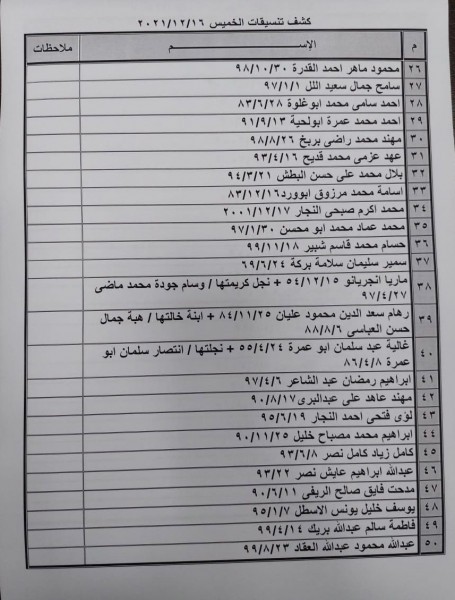 كشف تنسيقات الخميس ٢٠٢١/١٢/١٦
م الإســـــــم ملاحظات
٢٦ محمود ماهر احمد القدرة ٩٨/١٠/٣٠
٢٧ سامح جمال سعيد اللل ٩٧/١/١
٢٨ احمد سامى محمد ابوغلوة ٨٣/٦/٢٨
٢٩ احمد محمد عمرة ابولحية ٩١/٩/١٣
٣٠ مهند محمد راضى بريخ ٩٨/٨/٢٦
٣١ عهد عزمى محمد قديح ٩٣/٤/١٦
٣٢ بلال محمد على حسن البطش ٩٤/٣/٢١
٣٣ اسامة محمد مرزوق ابووردة ٨٣/١٢/١٦
٣٤ محمد اكرم صبحى النجار ٢٠٠١/١٢/١٧
٣٥ محمد عماد محمد ابو محسن ٩٧/١/٣٠
٣٦ حسام محمد قاسم شبير ٩٩/١١/١٨
٣٧ سمير سليمان سلامة بركة ٦٩/٦/٢٤
٣٨ ماريا انجريانو ٥٤/١٢/١٥ + نجل كريمتها / وسام جودة محمد ماضى
٩٧/٤/٢٧
٣٩ رهام سعد الدين محمود عليان ٨٤/١١/٢٥ + ابنة خالتها / هبة جمال
حسن العباسى ٨٨/٨/٦
٤٠ غالية عبد سلمان ابو عمرة ٥٥/٤/٢٤ + نجلتها / انتصار سلمان ابو
عمرة ٨٦/٤/٨
٤١ ابراهيم رمضان عبد الشاعر ٩٧/٤/٦
٤٢ مهند عاهد على عبدالبرى ٩٠/٨/١٧
٤٣ لؤى فتحى احمد النجار ٩٥/٦/١٩
٤٤ ابراهيم محمد مصباح خليل ٩٠/١١/٢٥
٤٥ كامل زياد كامل نصر ٩٣/٦/٨
٤٦ عبدالله ابراهيم عايش نصر ٩٣/٢٢
٤٧ مدحت فايق صالح الريفى ٩٠/٦/١١
٤٨ يوسف خليل يونس الاسطل ٩٥/١/٧
٤٩ فاطمة سالم عبدالله بريك ٩٩/٤/١٤
٥٠ عبدالله محمود عبدالله العقاد ٩٩/٨/٢٣